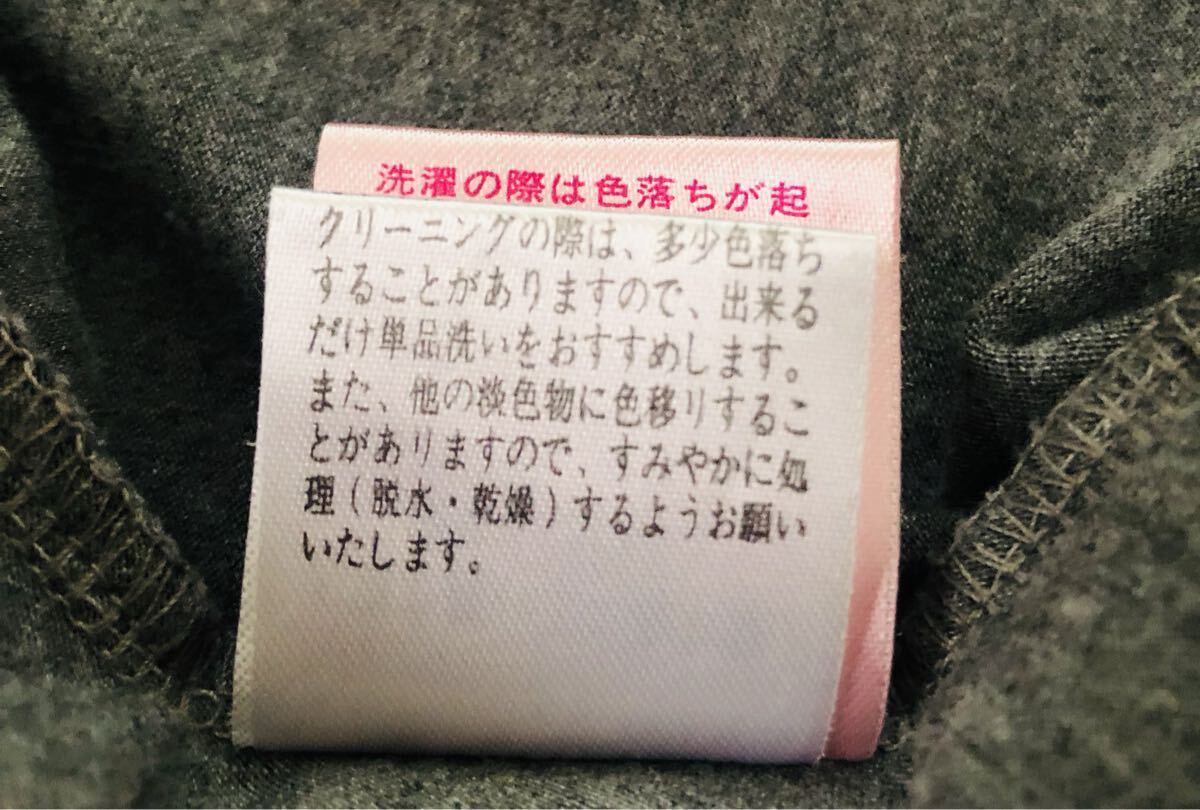 洗濯の際は色落ちが起
クリーニングの際は、多少色落ち
することがありますので、出来る
だけ単品洗いをおすすめします。
また、他の淡色物に色移りするこ
とがありますので、すみやかに処
理(脱水・乾燥)するようお願い
いたします。